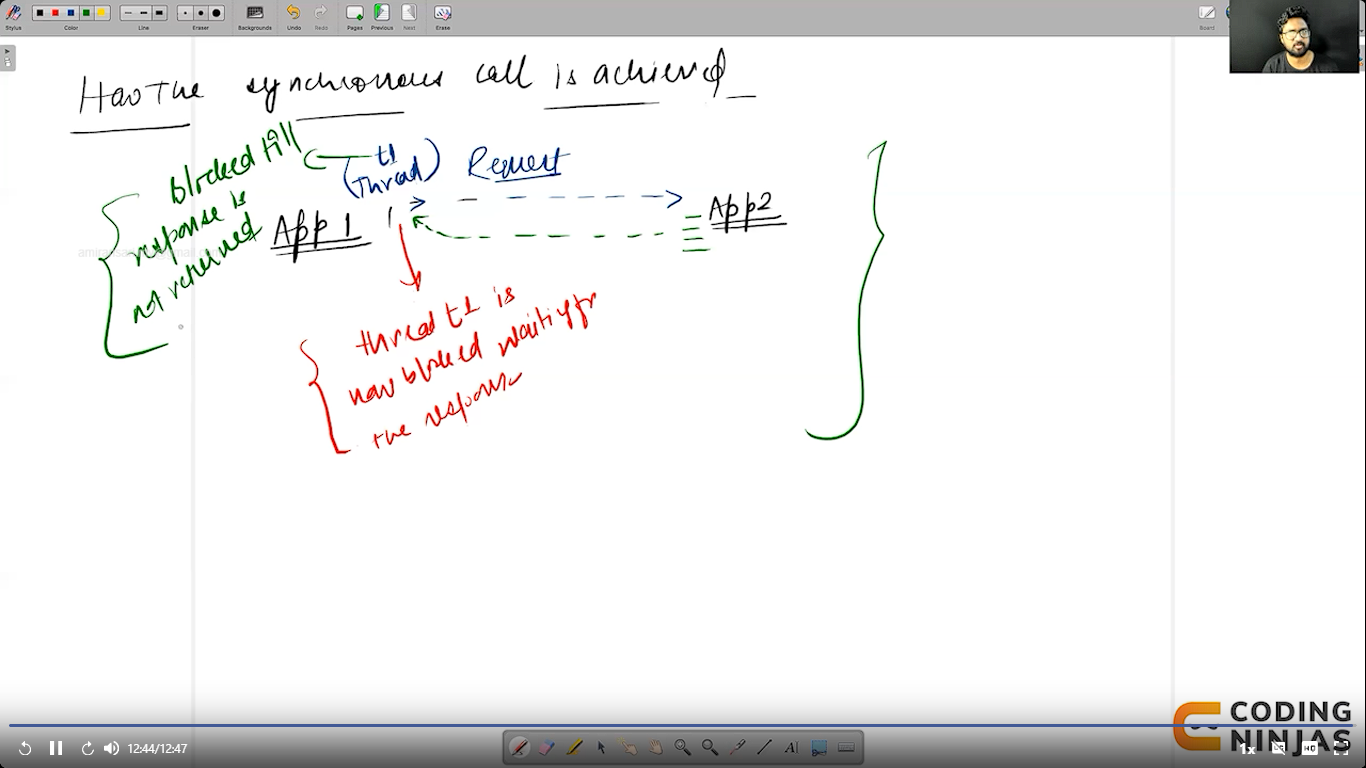 Stylus
Color
Line
Eraser
Backgrounds
Undo
Redo
Pages
Previous
Next
Erase
Board
How the synchronous call is achieved
blocked till
response is
not returned
t1
(Thread)
Request
App 1
App2
thread t1 is
now blocked waiting for
the response
CODING
NINJAS
12:44/12:47
1x
HD